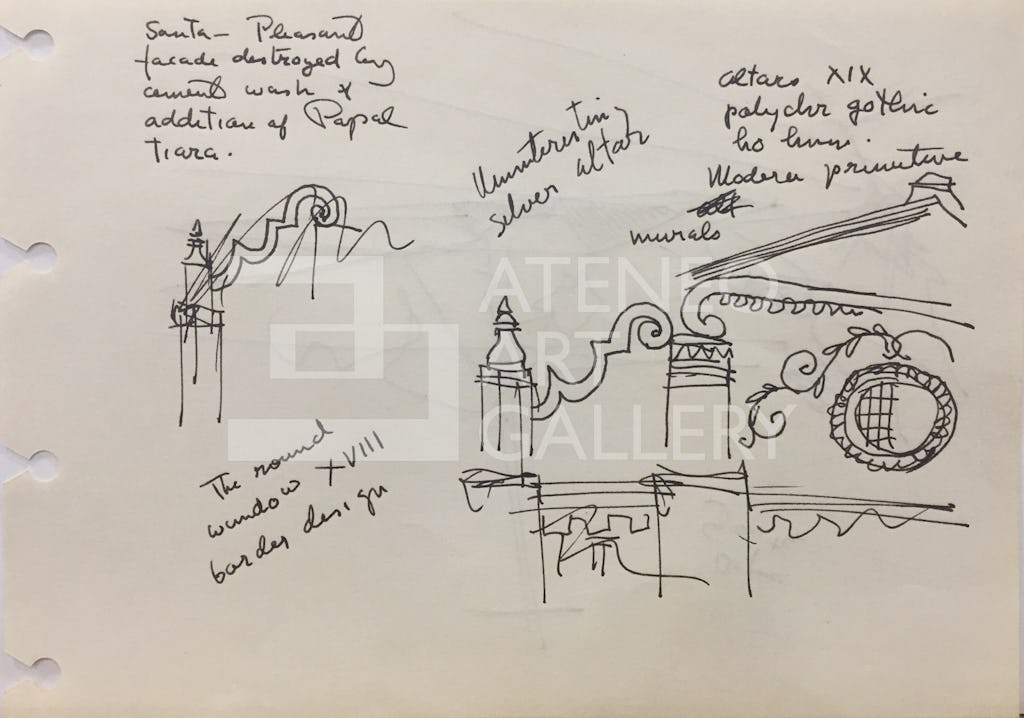 Santa – Pleasant
facade destroyed by
cement wash &
addition of Papal
Tiara.
Uninteresting
silver altar
altars XIX
polychr gothic
Modern primitive
murals
The round
window XVIII
border design
ATENEO
ART
GALLERY